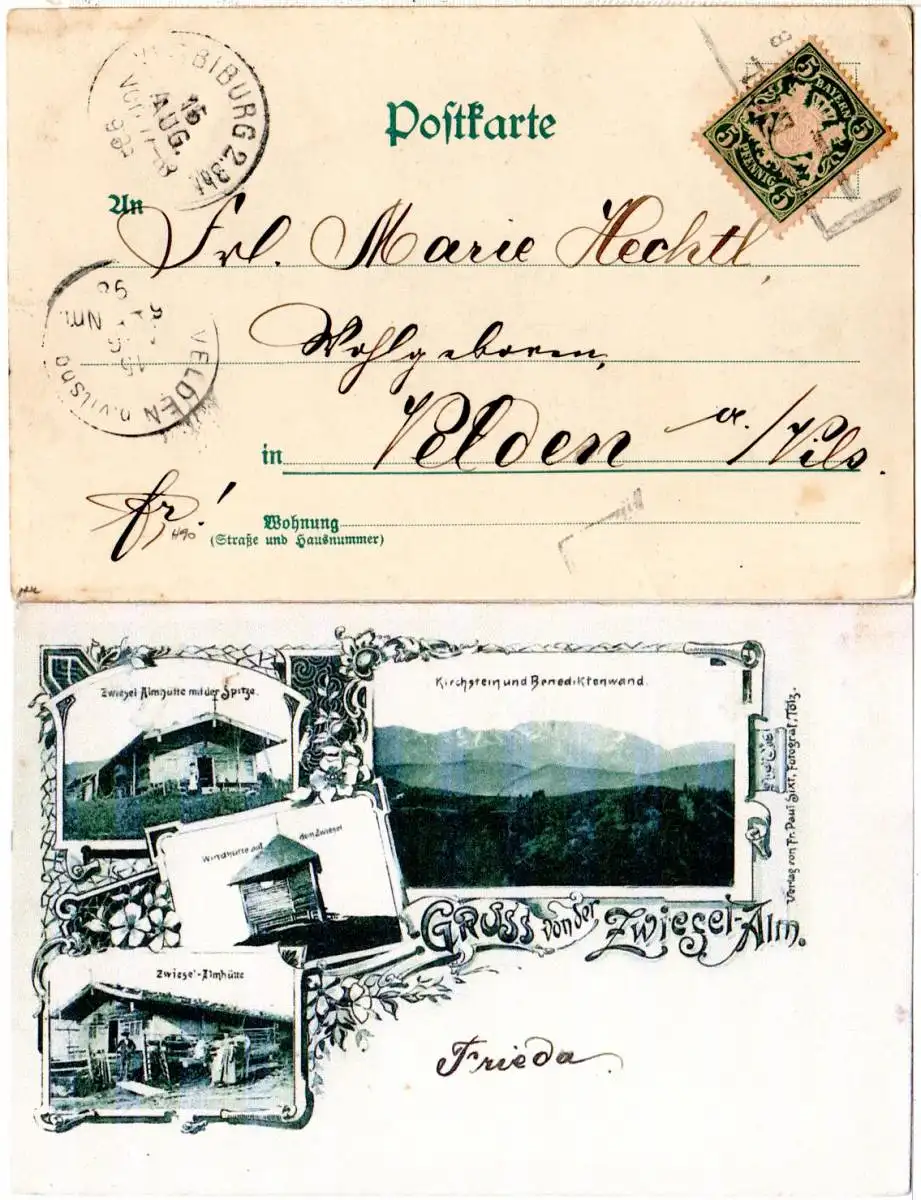 VILSBIBURG 2.BHf.
15
AUG.
VOR. 7-8
98
Postkarte
5 BAYERN 5
5 PFENNIG 5
An Frl. Marie Hechtl,
Wohlgeboren,
in Velden a./Vils.
VELDEN a. VILS
Nm.
98
fr.!
Wohnung
(Straße und Hausnummer)
Zwiesel Almhütte mit der Spitze.
Kirchstein und Benediktenwand.
Windhütte auf dem Zwiesel
Zwiesel-Almhütte
Gruss von der Zwiesel-Alm.
Verlag von Fr. Paul Sixt, Fotograf, Tölz.
Frieda